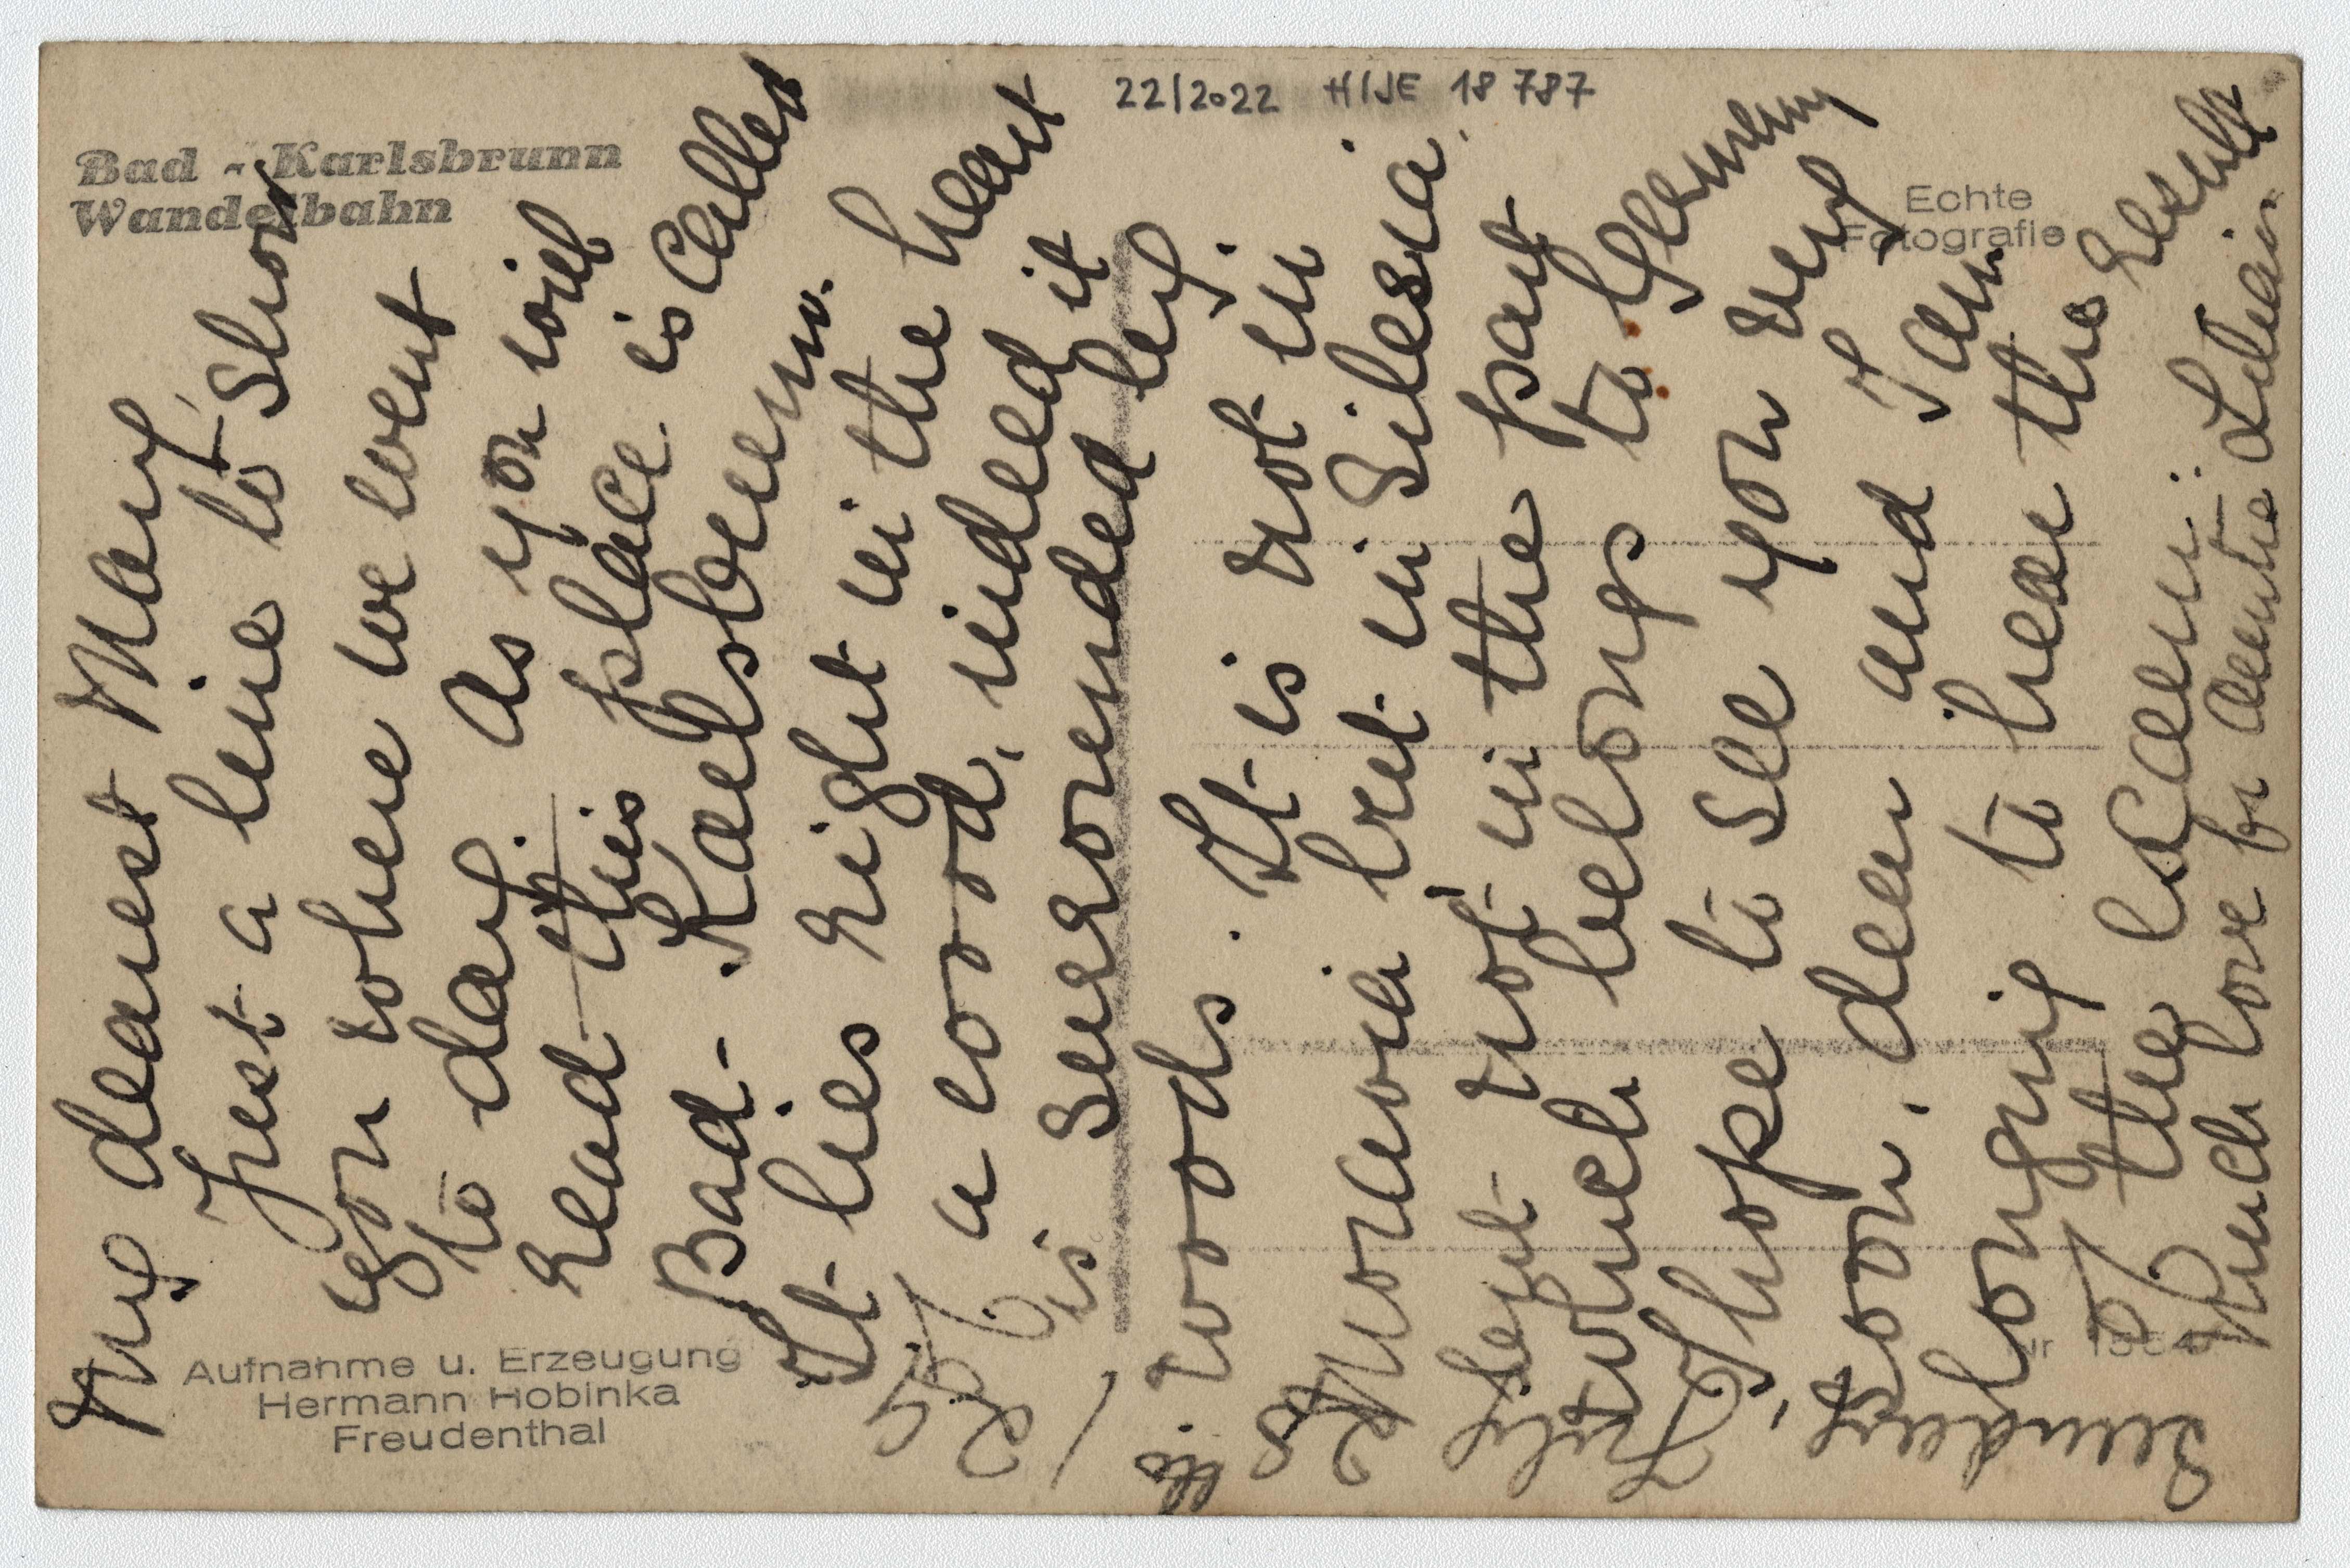 22/2022 H/JE 18 787
Bad - Karlsbrunn
Wandelbahn
Echte
Fotografie
Aufnahme u. Erzeugung
Hermann Hobinka
Freudenthal
Sunday
July
My dearest Mary,
Just a line to show
you where we went
to day. As you will
read this place is called
Bad-Karlsbrunn.
It lies right in the heart
of a wood, indeed it
is surrounded by
woods. It is not in
Moravia but in Silesia,
but not in the part
which belongs to Germany
I hope to see you very
soon, dear and I am
longing to hear the result
of the exam:
Much love fr Auntie Lilian.